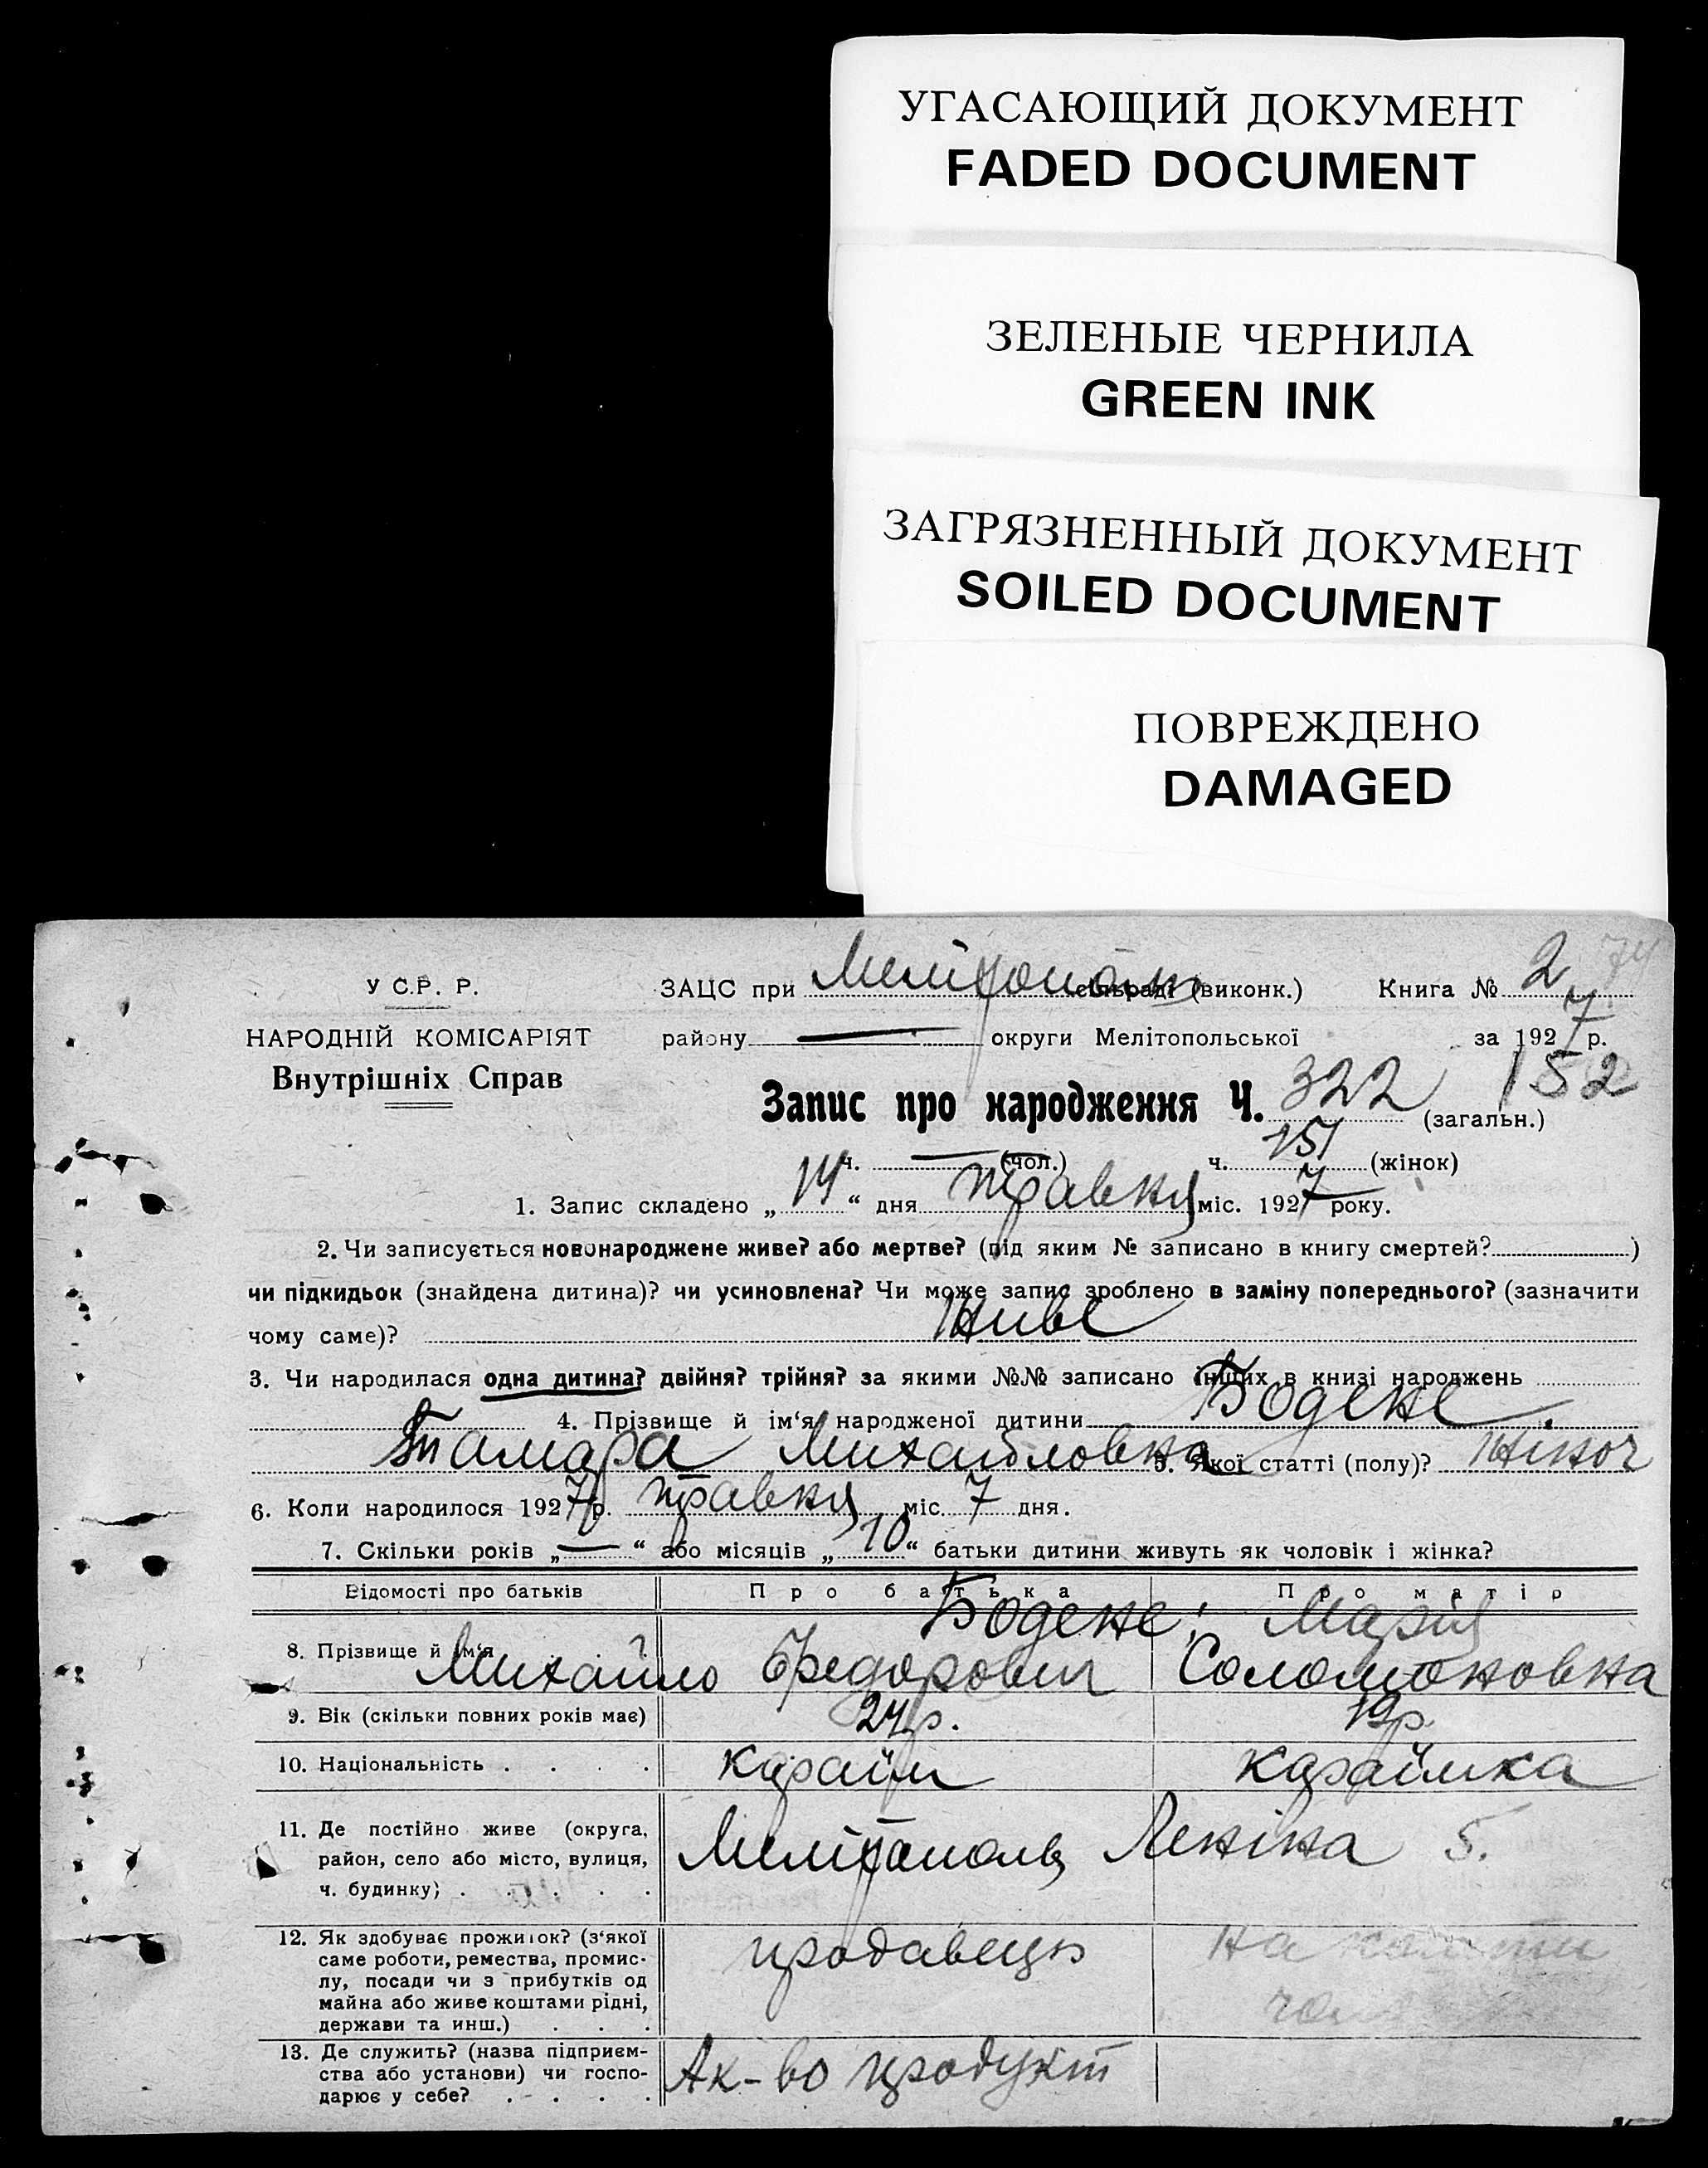 УГАСАЮЩИЙ ДОКУМЕНТ
FADED DOCUMENT
ЗЕЛЕНЫЕ ЧЕРНИЛА
GREEN INK
ЗАГРЯЗНЕННЫЙ ДОКУМЕНТ
SOILED DOCUMENT
ПОВРЕЖДЕНО
DAMAGED
У С.Р. Р.
НАРОДНІЙ КОМІСАРІЯТ
Внутрішніх Справ
ЗАЦС при Мелітополь сільраді (виконк.) Книга № 2 74
району — округи Мелітопольської за 1927 р.
Запис про народження Ч. 322 (загальн.) 152
ч. — (чол.) ч. 151 (жінок)
1. Запис складено „ 14 “ дня травня міс. 1927 року.
2. Чи записується новонароджене живе? або мертве? (під яким № записано в книгу смертей? )
чи підкидьок (знайдена дитина)? чи усиновлена? Чи може запис зроблено в заміну попереднього? (зазначити
чому саме)? живе
3. Чи народилася одна дитина? двійня? трійня? за якими №№ записано інших в книзі народжень
4. Прізвище й ім‘я народженої дитини Бодене.
Тамара Михайловна 5. Якої статті (полу)? жіноч
6. Коли народилося 1927 р. травня міс. 7 дня.
7. Скільки років „ — “ або місяців „ 10 “ батьки дитини живуть як чоловік і жінка?
Відомості про батьків Про батька Про матір
Бодене; Марія
8. Прізвище й ім‘я Михайло Федорович Соломоновна
9. Вік (скільки повних років має) 24 р. 19 р.
10. Національність . . . . караїм караїмка
11. Де постійно живе (округа,
район, село або місто, вулиця,
ч. будинку) . . . . . Мелітополь Леніна 5.
12. Як здобуває прожиток? (з‘якої
саме роботи, ремества, промис-
лу, посади чи з прибутків од
майна або живе коштами рідні,
держави та инш.) . . . продавець на кошти
13. Де служить? (назва підприєм-
ства або установи) чи госпо-
дарює у себе? . . . . Ак-во продукт